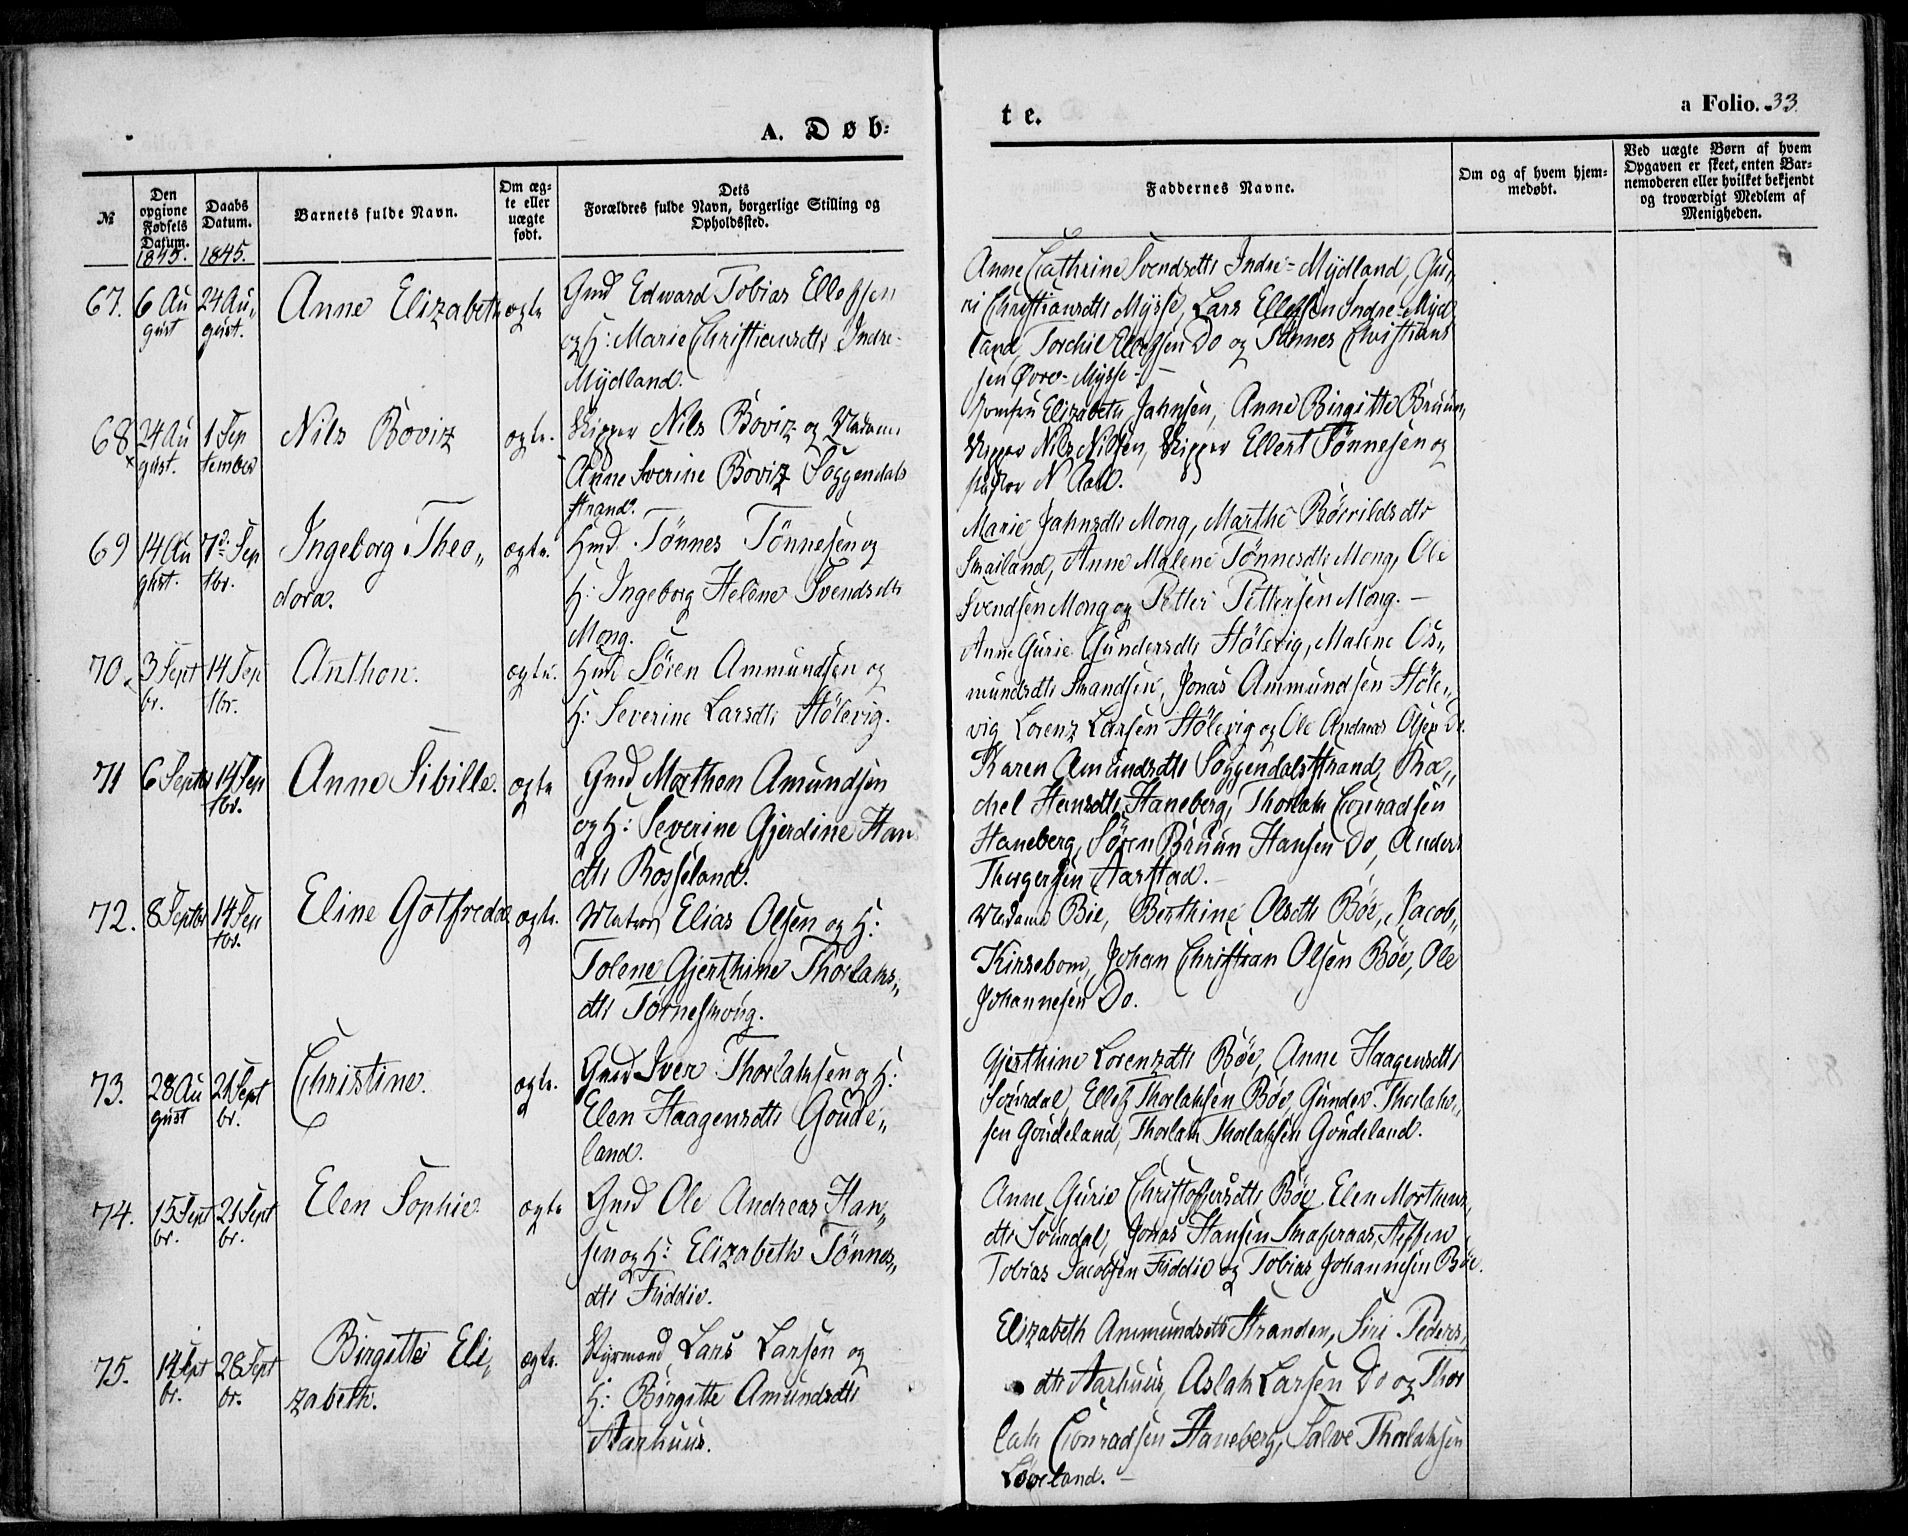 A. Døb-
te.
a Folio. 33.
№
Den opgivne Fødsels Datum. 1845.
Daabs Datum. 1845.
Barnets fulde Navn.
Om ægte eller uægte født.
Dets Forældres fulde Navn, borgerlige Stilling og Opholdssted.
Faddernes Navne.
Om og af hvem hjemmedøbt.
Ved uægte Børn af hvem Opgaven er skeet, enten Barnemoderen eller hvilket bekjendt og troværdigt Medlem af Menigheden.
67. 6 August 24 August. Anne Elizabeth ægte
Gmd Edward Tobias Ellefsen
og H: Marie Christiansdtr Indre-
Mydland.
Anne Cathrine Svendsdtr Indre-Mydland, Gu„
ri Christiansdtr Mysse, Lars Ellefsen Indre-Myd
land, Torchil Ellefsen Do og Tønnes Christians
sen Øvre-Mysse.-
68. 24 August. 1 September Nils Bovitz ægte.
Skipper Nils Bovitz og Madame
Anne Sverine Bovitz Soggendals
Strand.
Jomfru Elizabeth Jahnsen, Anne Birgitte Bruun,
Skipper Nils Nilsen, Skipper Ellert Tønnesen og
N Aall.
69 14 August. 7d Septbr. Ingeborg Theo„
dora. ægte.
Hmd. Tönnes Tönnesen og
H: Ingeborg Helene Svendsdtr
Mong.
Marie Jahnsdtr Mong, Marthe Börrildsdtr
Svaaland, Anne Malene Tønnesdtr Mong, Ole
Svendsen Mong og Petter Pettersen Mong. -
70. 3 Septbr. 14 Septbr. Anthon. ægte.
Hmd Sören Ammundsen og
H: Severine Larsdtr Stölevig.
Anne Gurie Gundersdtr Stölevig, Malene Os„
mundsdtr Strandsen, Jonas Ammundsen Stöle„
vig Lorenz Larsen Stölevig og Ole Andreas Olsen Do.
71 6 Septbr 14 Septbr. Anne Sibille. ægte
Gmd Morthen Amundsen
og H: Severine Gjerdine Han
dtr Rosseland.
Karen Amundsdtr Soggendalsstrand, Ra„
chel Hansdtr Haneberg, Thorlak Conradsen
Haneberg, Sören Bruun Hansen Do, Anders
Thorgersen Aarstad.-
72. 8 Septbr 14 Septbr. Eline Gotfreda ægte.
Matros Elias Olsen og H:
Tolene Gjerthine Thorlaks„
dtr Tørnesmong.
Madame Bie, Berthine Olsdtr Böe, Jacob„
Kirsebom, Johan Christian Olsen Böe, Ole
Johannesen Do.
73. 28 August 21 Septbr. Christine. ægte.
Gmd Iver Thorlaksen og H:
Elen Haagensdtr Goude„
land.
Gjerthine Lorenzdtr Böe, Anne Haagensdtr
Sourdal, Ellef Thorlaksen Böe, Gunder Thorlak„
sen Goudeland, Thorlak Thorlaksen Goudeland.
74. 15 Septbr. 21 Septbr. Elen Sophie. ægte
Gmd Ole Andreas Han„
sen og H: Elizabeth Tönnes„
dtr Fiddie.
Anne Gurie Christofersdtr Böe, Elen Morthens„
dtr Sourdal, Jonas Hansen
Tobias Jacobsen Fiddie og Tobias Johannesen Böe.
75. 14 Septbr. 28 Septbr. Birgitte Eli„
zabeth. ægte.
Styrmand Lars Larsen og
H: Birgitte Amundsdtr
Aarhuus.
Elizabeth Ammundsdtr Stranden, Siri Peders„
dtr Aarhuus, Aslak Larsen Do og Thor
lak Conradsen Haneberg, Salve Thorlaksen
Löveland.-